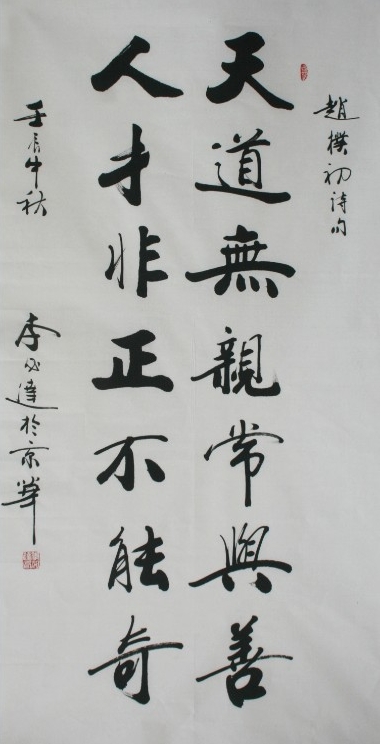 趙樸初詩句
天道無親常與善
人才非正不能奇
壬辰中秋
李必達於京華